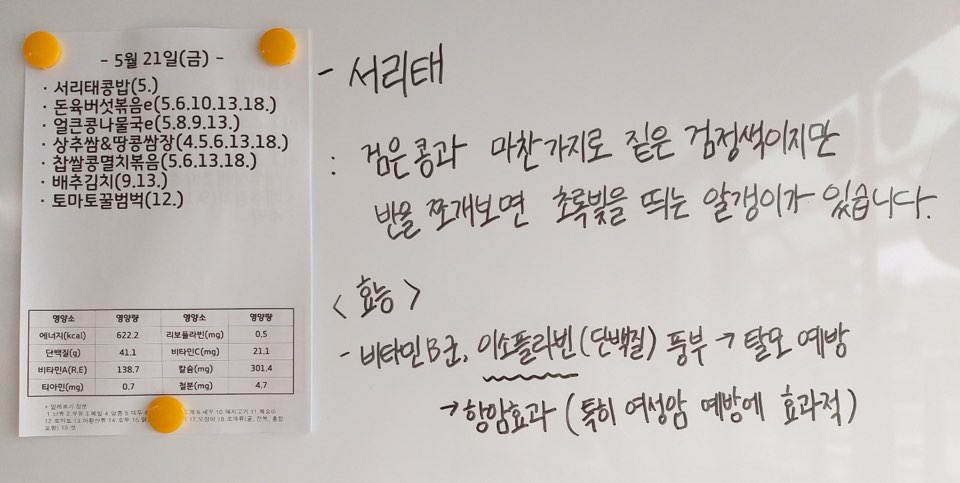 - 5월 21일(금) -
· 서리태콩밥(5.)
· 돈육버섯볶음e(5.6.10.13.18.)
· 얼큰콩나물국e(5.8.9.13.)
· 상추쌈&땅콩쌈장(4.5.6.13.18.)
· 찹쌀콩멸치볶음(5.6.13.18.)
· 배추김치(9.13.)
· 토마토꿀범벅(12.)
영양소 영양량 영양소 영양량
에너지(kcal) 622.2 리보플라빈(mg) 0.5
단백질(g) 41.1 비타민C(mg) 21.1
비타민A(R.E) 138.7 칼슘(mg) 301.4
티아민(mg) 0.7 철분(mg) 4.7
* 알레르기 정보
1.난류 2.우유 3.메밀 4.땅콩 5.대두 9.새우 10.돼지고기 11.복숭아
12.토마토 13.아황산류 14.호두 17.오징어 18.조개류(굴, 전복, 홍합
포함) 19.잣
- 서리태
: 검은콩과 마찬가지로 짙은 검정색이지만
반을 쪼개보면 초록빛을 띄는 알갱이가 있습니다.
<효능>
- 비타민B군, 이소플라빈(단백질) 풍부 → 탈모 예방
→ 항암효과 (특히 여성암 예방에 효과적)